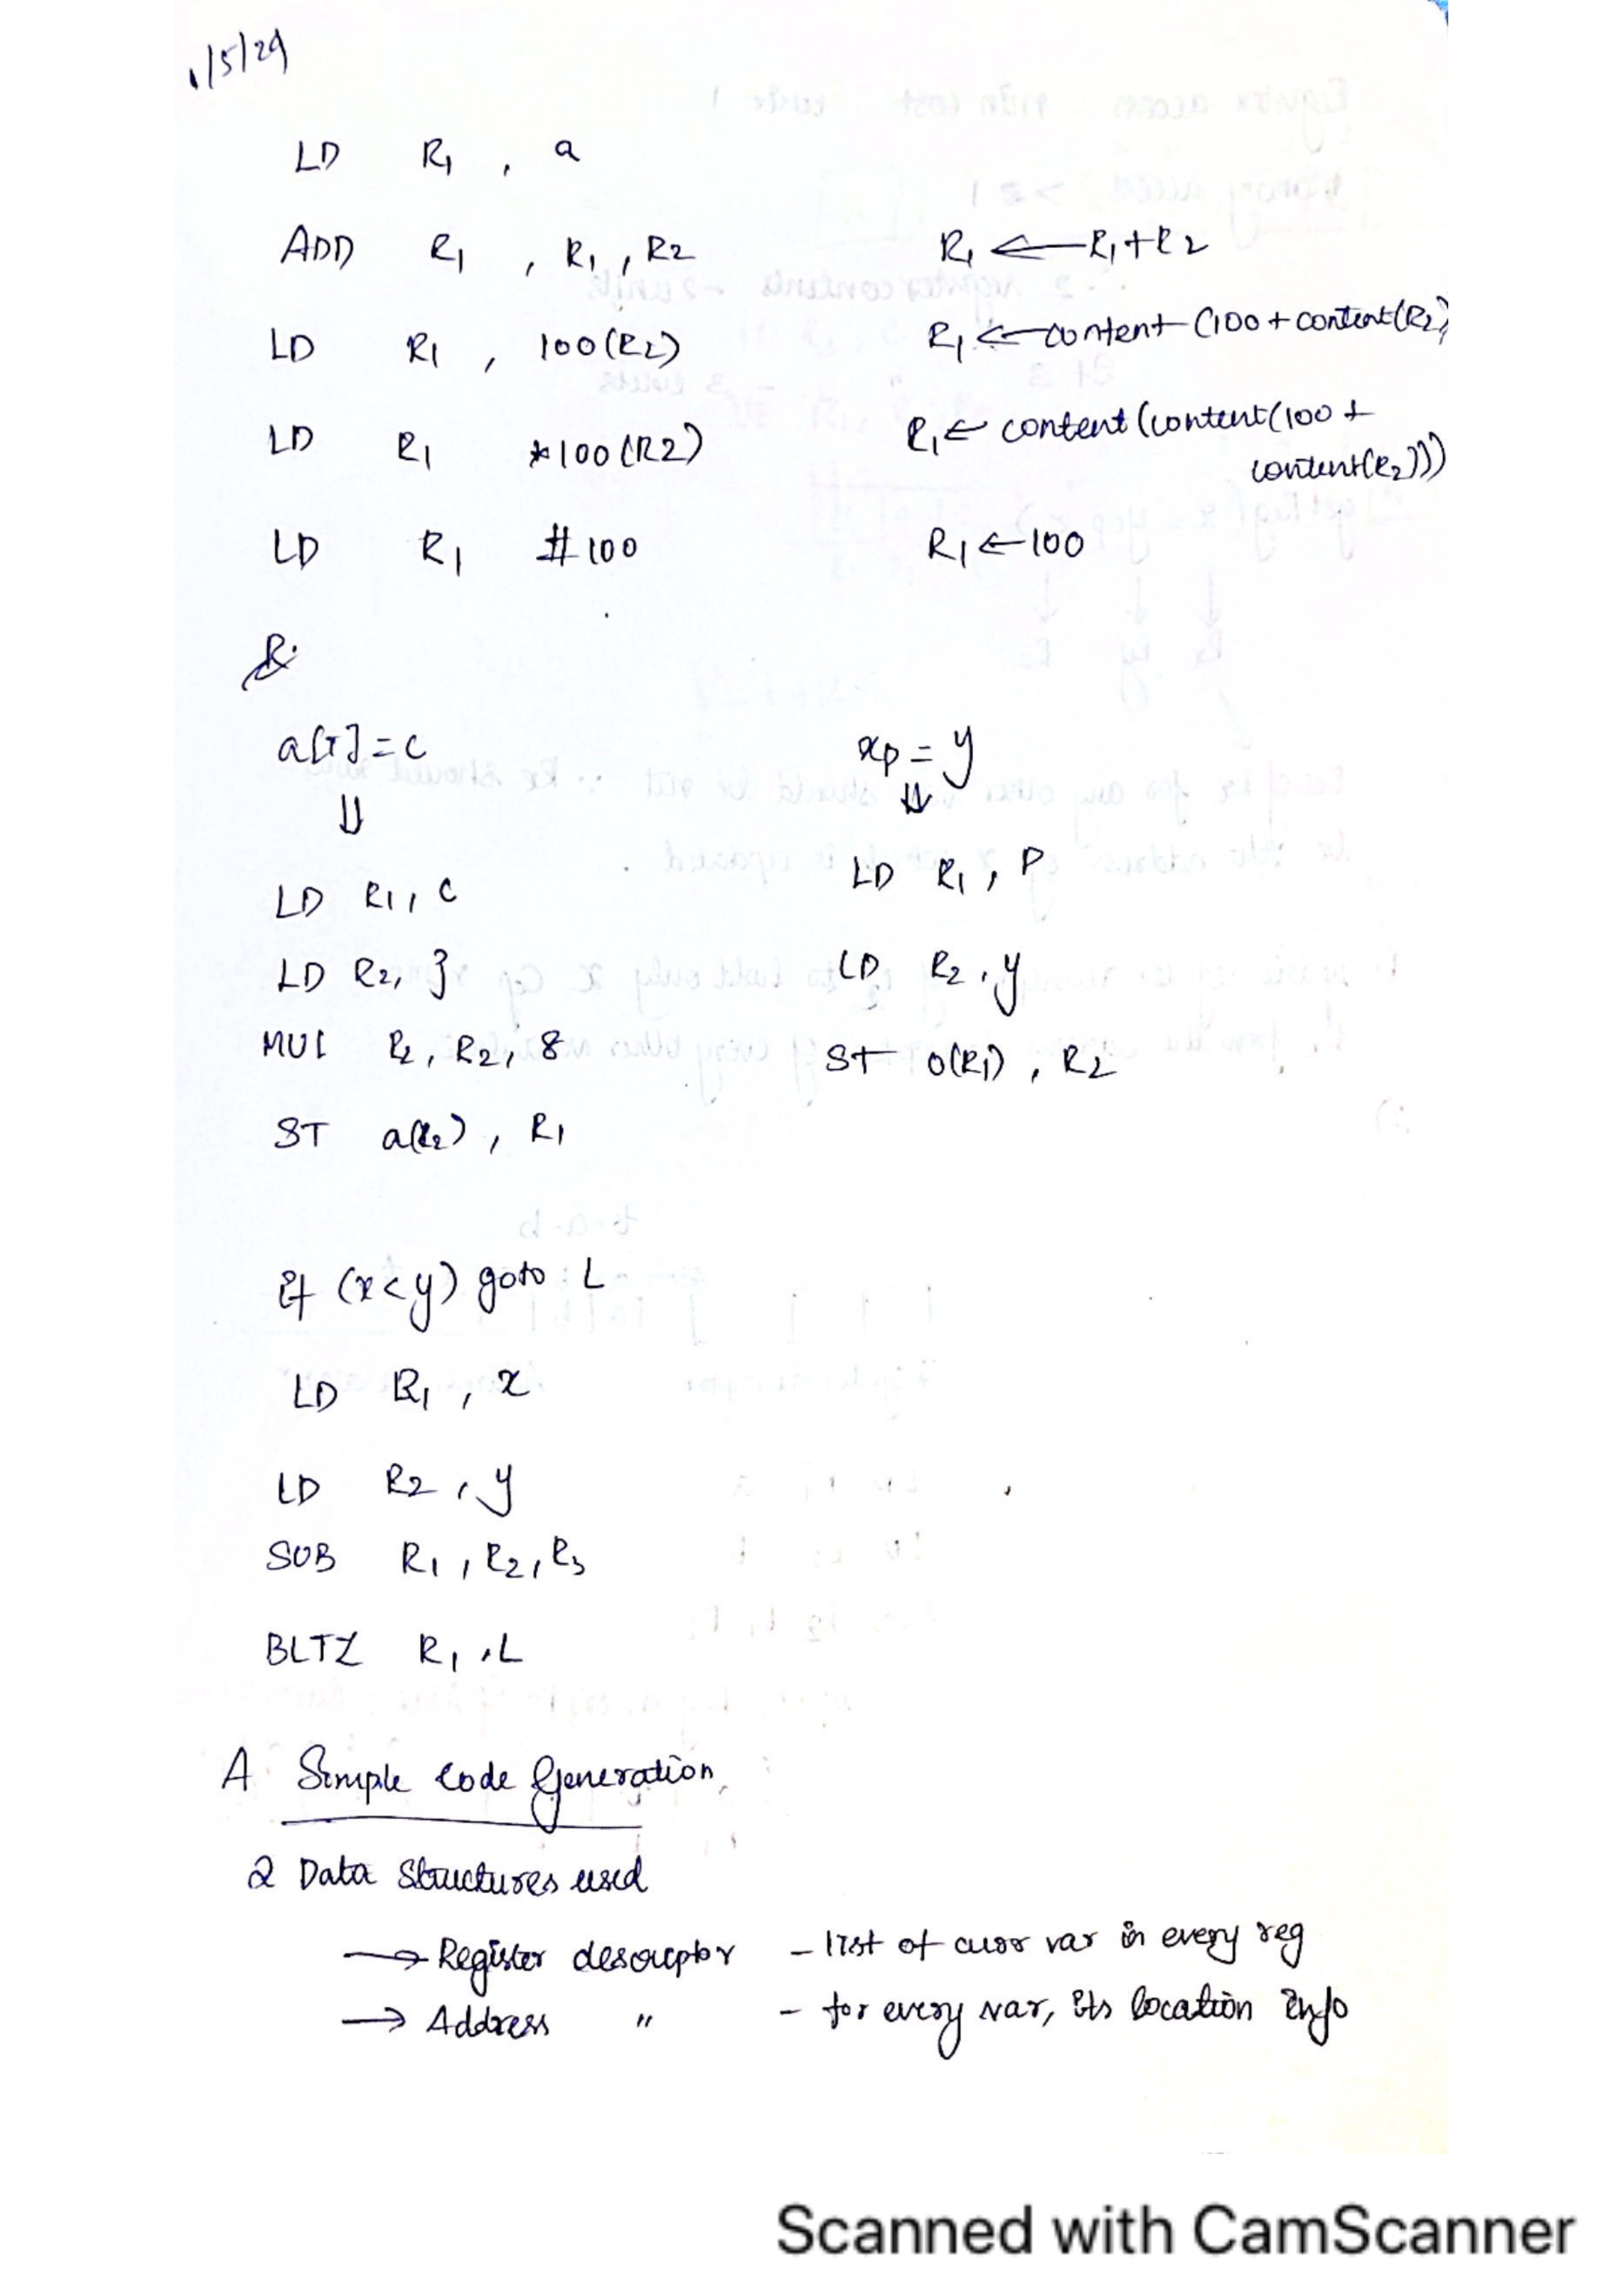 1/5/24
LD R1 , a
ADD R1 , R1 , R2 R1 ← R1+R2
LD R1 , 100(R2) R1 ← content (100 + content(R2)
LD R1 *100(R2) R1 ← content (content(100 +
content(R2)))
LD R1 #100 R1 ← 100
a[j] = c xp = y
⇓ ⇓
LD R1, c LD R1, P
LD R2, j LD R2, y
MUL R2, R2, 8 ST 0(R1) , R2
ST a(R2) , R1
if (x<y) goto L
LD R1 , x
LD R2 , y
SUB R1 , R2, R3
BLTZ R1 , L
A Simple Code Generation
2 Data Structures used
→ Register descriptor - list of curr var in every reg
→ Address " - for every var, its location info
Scanned with CamScanner